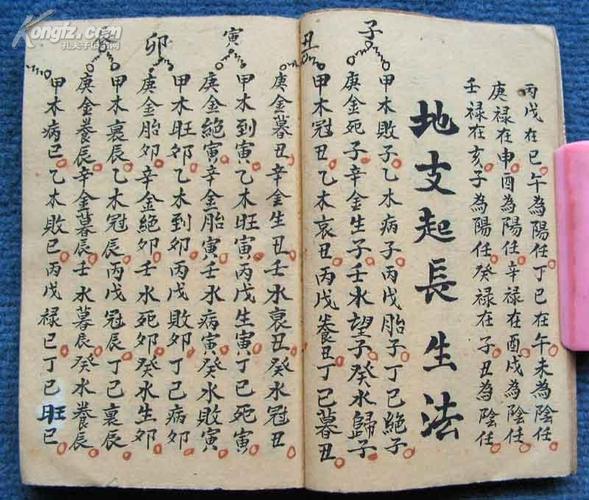 丙戊在巳午為陽任丁己在午未為陰任
庚祿在申酉為陽任辛祿在酉戌為陰任
壬祿在亥子為陽任癸祿在子丑為陰任
地支起長生法
子
甲木敗子乙木病子丙戊胎子丁己絕子
庚金死子辛金生子壬水望子癸水歸子
丑
甲木冠丑乙木衰丑丙戊養丑丁己墓丑
庚金墓丑辛金生丑壬水衰丑癸水冠丑
寅
甲木到寅乙木旺寅丙戊生寅丁己死寅
庚金絕寅辛金胎寅壬水病寅癸水敗寅
卯
甲木旺卯乙木到卯丙戊敗卯丁己病卯
庚金胎卯辛金絕卯壬水死卯癸水生卯
辰
甲木裏辰乙木冠辰丙戊冠辰丁己裏辰
庚金養辰辛金墓辰壬水墓辰癸水養辰
甲木病巳乙木敗巳丙戊祿巳丁己旺巳
Kongfz.com
孔夫子旧书网